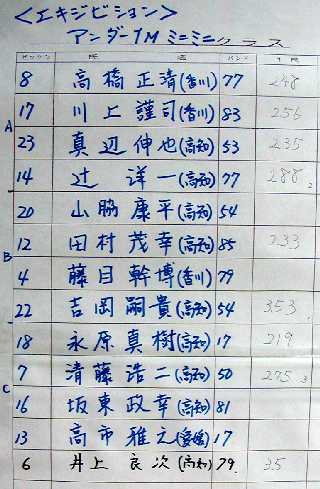 <エキジビション>
アンダー1M ミニミニクラス
ゼッケン 氏 名 バンド
8 高橋正清(香川) 77 248
17 川上謹司(香川) 83 256
A
23 真辺伸也(高知) 53 235
14 辻 洋一(高知) 77 288 2
20 山脇康平(高知) 54
12 田村茂幸(高知) 85 233
B
4 藤目幹博(香川) 79
22 吉岡嗣貴(高知) 54 353
18 永原真樹(高知) 17 219
7 清藤浩二(高知) 50 275 3
C
16 坂東政幸(高知) 81
13 高市雅之(愛媛) 17
6 井上良次(高知) 79 35